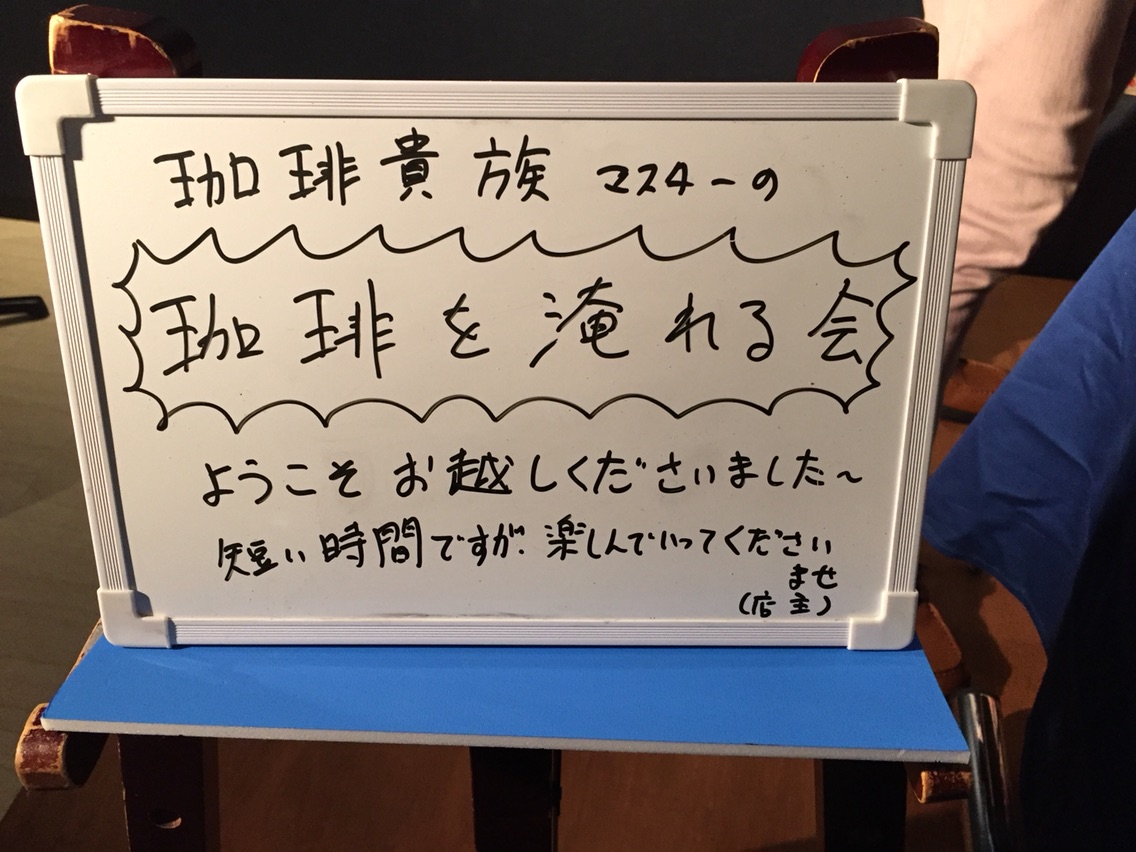 珈琲貴族 マスターの
珈琲を淹れる会
ようこそお越しくださいました〜
短い時間ですが、楽しんでいってください
ませ
(店主)